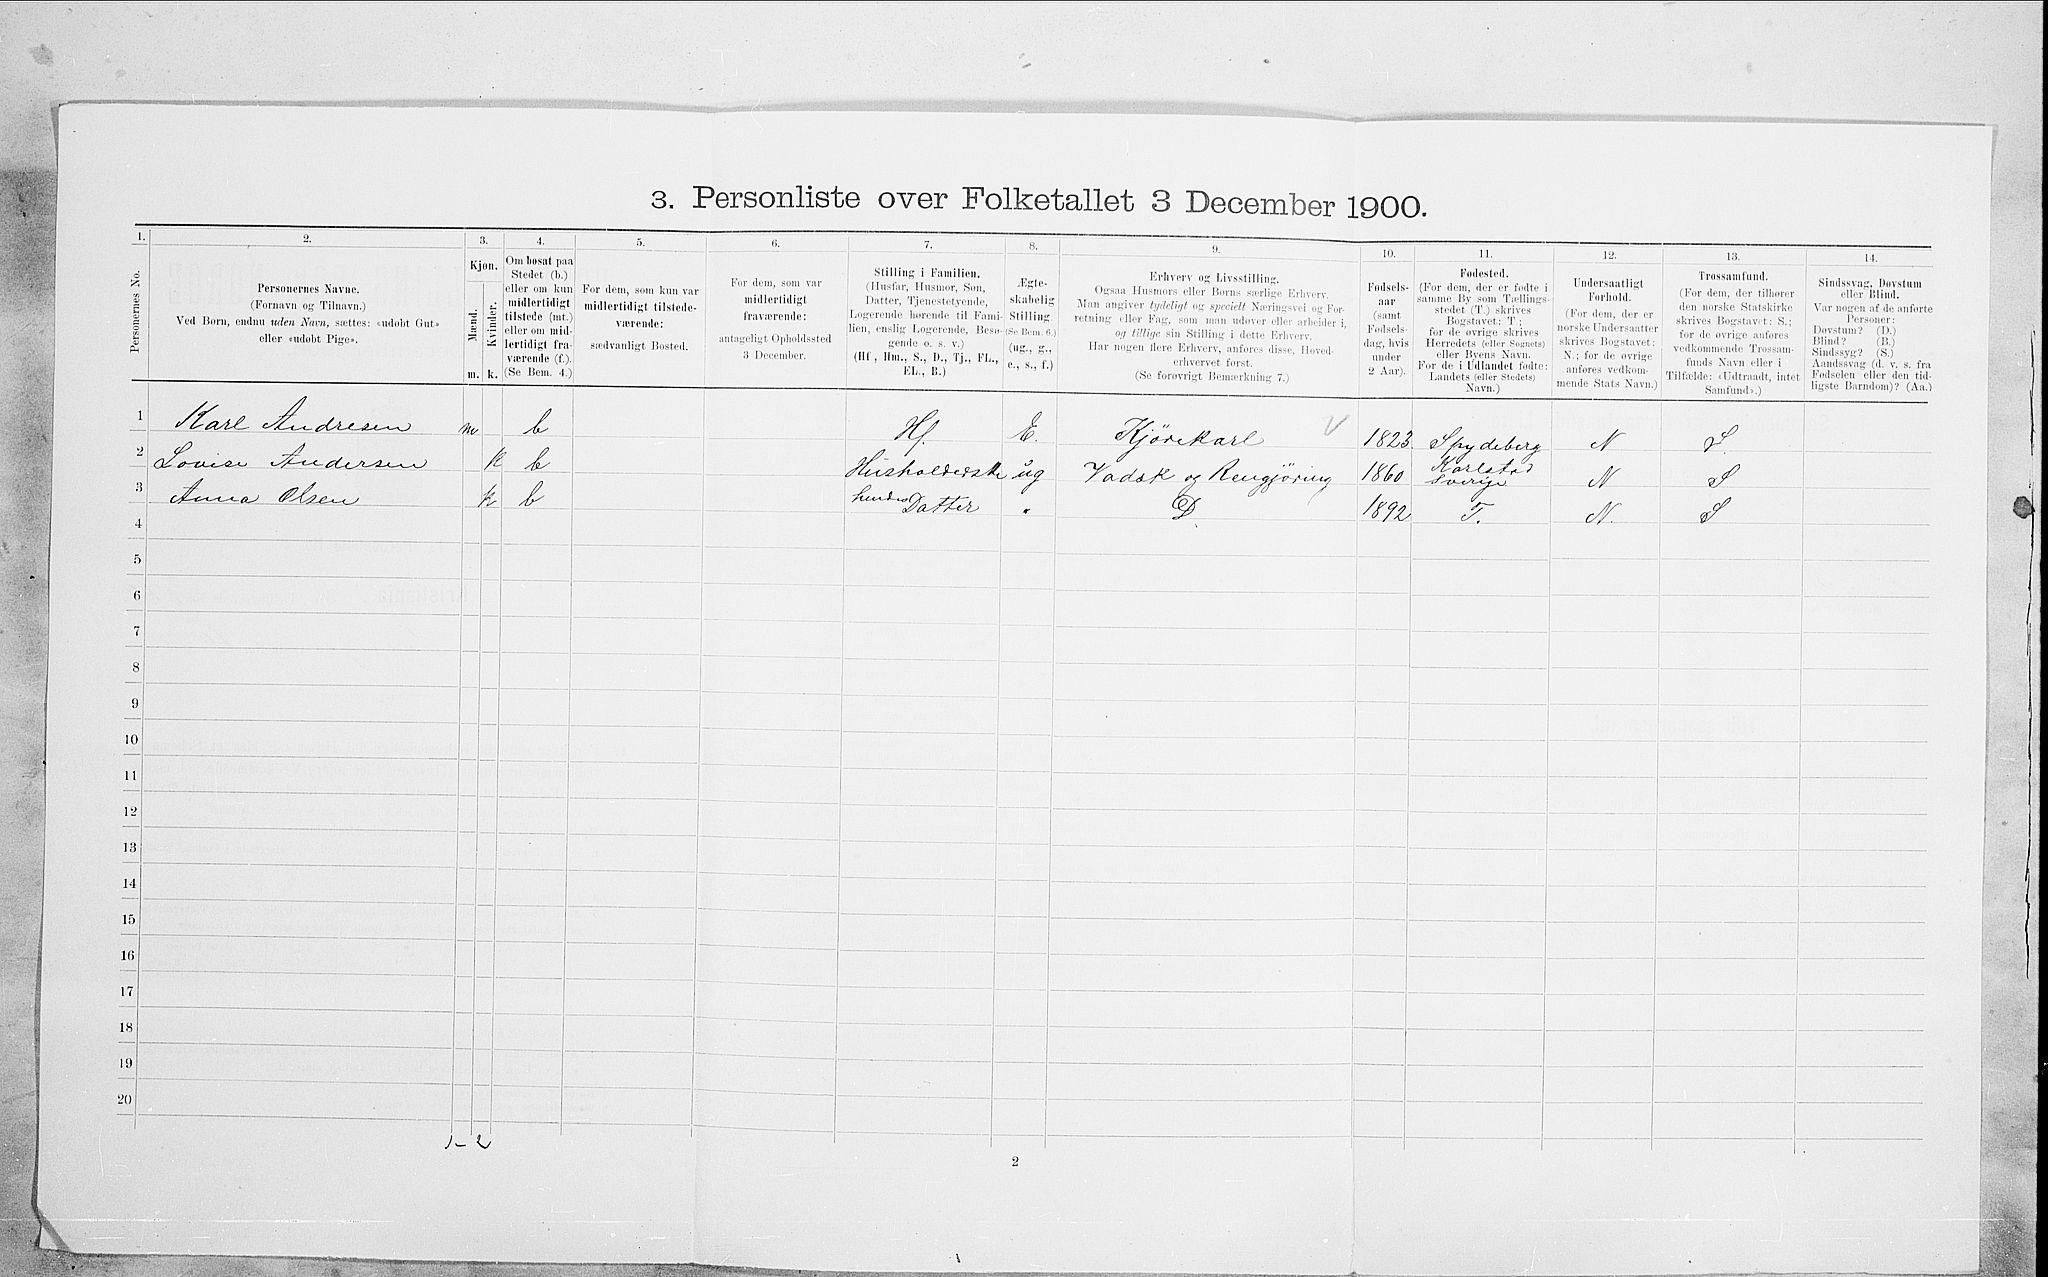 3. Personliste over Folketallet 3 December 1900.
1. 2. 3. 4. 5. 6. 7. 8. 9. 10. 11. 12. 13. 14.
Personernes No.
Personernes Navne.
(Fornavn og Tilnavn.)
Ved Børn, endnu uden Navn, sættes: «udøbt Gut»
eller «udøbt Pige».
Kjøn.
Mænd.
Kvinder.
m. k.
Om bosat paa
Stedet (b.)
eller om kun
midlertidigt
tilstede (mt.)
eller om mid-
lertidigt fra-
værende (f.).
(Se Bem. 4.)
For dem, som kun var
midlertidigt tilstede-
værende:
sædvanligt Bosted.
For dem, som var
midlertidigt
fraværende:
antageligt Opholdssted
3 December.
Stilling i Familien.
(Husfar, Husmor, Søn,
Datter, Tjenestetyende,
Logerende hørende til Fami-
lien, enslig Logerende, Besø-
gende o. s. v.)
(Hf., Hm., S., D., Tj., FL.,
EL., B.)
Ægte-
skabelig
Stilling.
(Se Bem. 6.)
(ug., g.,
e., s., f.)
Erhverv og Livsstilling.
Ogsaa Husmors eller Børns særlige Erhverv.
Man angiver tydeligt og specielt Næringsvei og For-
retning eller Fag, som man udøver eller arbeider i,
og tillige sin Stilling i dette Erhverv.
Har nogen flere Erhverv, anføres disse, Hoved-
erhvervet først.
(Se forøvrigt Bemærkning 7.)
Fødsels-
aar
(samt
Fødsels-
dag, hvis
under
2 Aar).
Fødested.
(For dem, der er fødte i
samme By som Tællings-
stedet (T.) skrives
Bogstavet: T;
for de øvrige skrives
Herredets (eller Sognets)
eller Byens Navn.
For de i Udlandet fødte:
Landets (eller Stedets)
Navn.)
Undersaatligt
Forhold.
(For dem, der er
norske Undersaatter
skrives Bogstavet:
N.; for de øvrige
anføres vedkom-
mende Stats Navn.)
Trossamfund.
(For dem, der tilhører
den norske Statskirke
skrives Bogstavet: S.;
for de øvrige anføres
vedkommende Trossam-
funds Navn eller i
Tilfælde: «Udtraadt, intet
Samfund».)
Sindssvag, Døvstum
eller Blind.
Var nogen af de anførte
Personer:
Døvstum? (D.)
Blind? (B.)
Sindssyg? (S.)
Aandssvag (d. v. s. fra
Fødselen eller den tid-
ligste Barndom)? (Aa.)
1 Karl Andresen m b Hf. E. Kjørekarl 1823 Spydeberg N S.
2 Lovise Andersen k b Husholderske ug Vadsk og Rengjøring 1860 Karlstad Sverige N S
3 Anna Olsen k b hendes Datter " D 1892 T. N. S
4
5
6
7
8
9
10
11
12
13
14
15
16
17
18
19
20
1-2
2